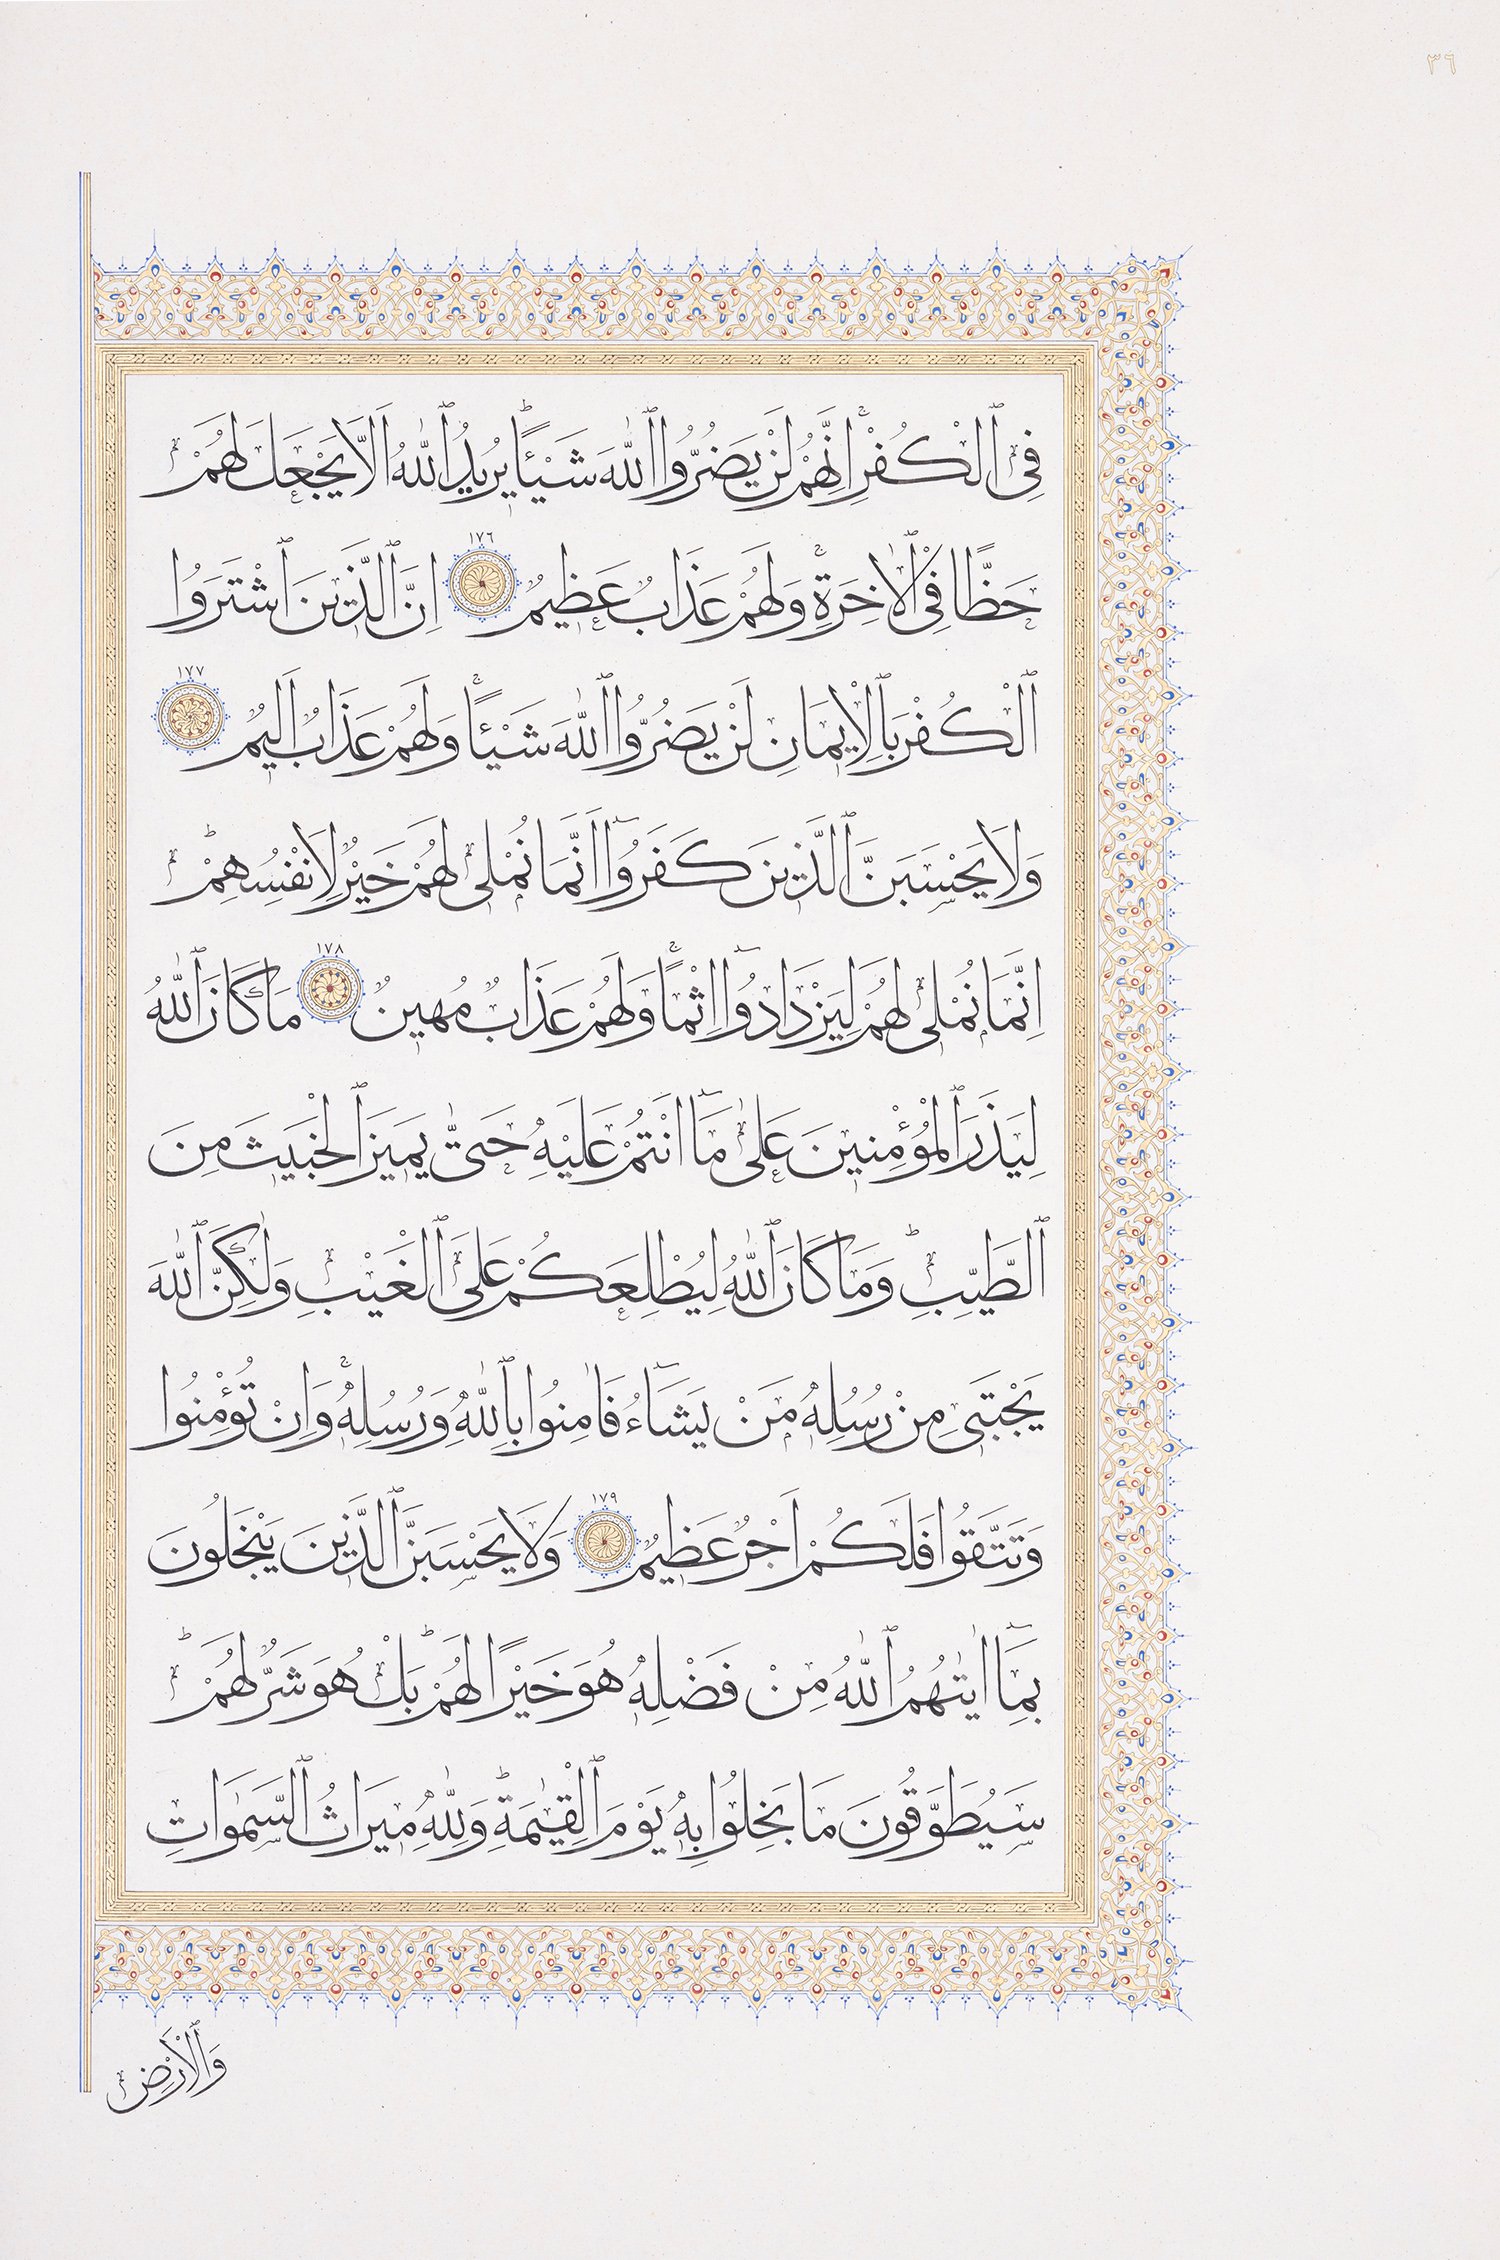 ٣٦
فِي ٱلْكُفْرِۚ اِنَّهُمْ لَنْ يَضُرُّوا ٱللّٰهَ شَيْـًٔاۜ يُرِيدُ ٱللّٰهُ اَلَّا يَجْعَلَ لَهُمْ
حَظًّا فِي ٱلْاٰخِرَةِۚ وَلَهُمْ عَذَابٌ عَظِيمٌ ١٧٦ اِنَّ ٱلَّذِينَ ٱشْتَرَوُا
ٱلْكُفْرَ بِٱلْاِيمَانِ لَنْ يَضُرُّوا ٱللّٰهَ شَيْـًٔاۚ وَلَهُمْ عَذَابٌ اَلِيمٌ ١٧٧
وَلَا يَحْسَبَنَّ ٱلَّذِينَ كَفَرُوٓا اَنَّمَا نُمْلِي لَهُمْ خَيْرٌ لِاَنْفُسِهِمْۜ
اِنَّمَا نُمْلِي لَهُمْ لِيَزْدَادُوٓا اِثْمًاۚ وَلَهُمْ عَذَابٌ مُهِينٌ ١٧٨ مَا كَانَ ٱللّٰهُ
لِيَذَرَ ٱلْمُؤْمِنِينَ عَلٰى مَٓا اَنْتُمْ عَلَيْهِ حَتّٰى يَمِيزَ ٱلْخَبِيثَ مِنَ
ٱلطَّيِّبِۜ وَمَا كَانَ ٱللّٰهُ لِيُطْلِعَكُمْ عَلَى ٱلْغَيْبِ وَلٰكِنَّ ٱللّٰهَ
يَجْتَبِي مِنْ رُسُلِهِ مَنْ يَشَٓاءُ فَاٰمِنُوا بِٱللّٰهِ وَرُسُلِهِۚ وَاِنْ تُؤْمِنُوا
وَتَتَّقُوا فَلَكُمْ اَجْرٌ عَظِيمٌ ١٧٩ وَلَا يَحْسَبَنَّ ٱلَّذِينَ يَبْخَلُونَ
بِمَٓا اٰتٰيهُمُ ٱللّٰهُ مِنْ فَضْلِهِ هُوَ خَيْرًا لَهُمْۜ بَلْ هُوَ شَرٌّ لَهُمْۜ
سَيُطَوَّقُونَ مَا بَخِلُوا بِهِ يَوْمَ ٱلْقِيٰمَةِۜ وَلِلّٰهِ مِيرَاثُ ٱلسَّمٰوَاتِ
وَٱلْاَرْضِ